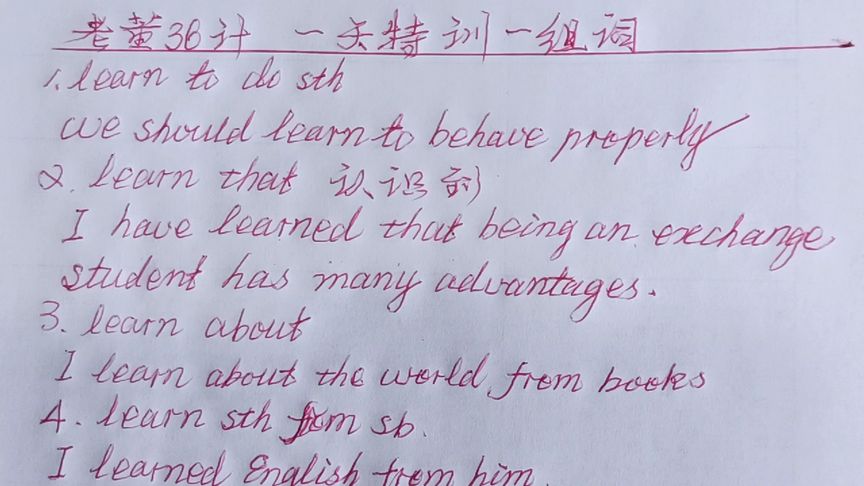 考黄36计 一天特训一组词
1. learn to do sth
we should learn to behave properly
2. learn that 认识到
I have learned that being an exchange
student has many advantages.
3. learn about
I learn about the world from books
4. learn sth from sb.
I learned English from him.